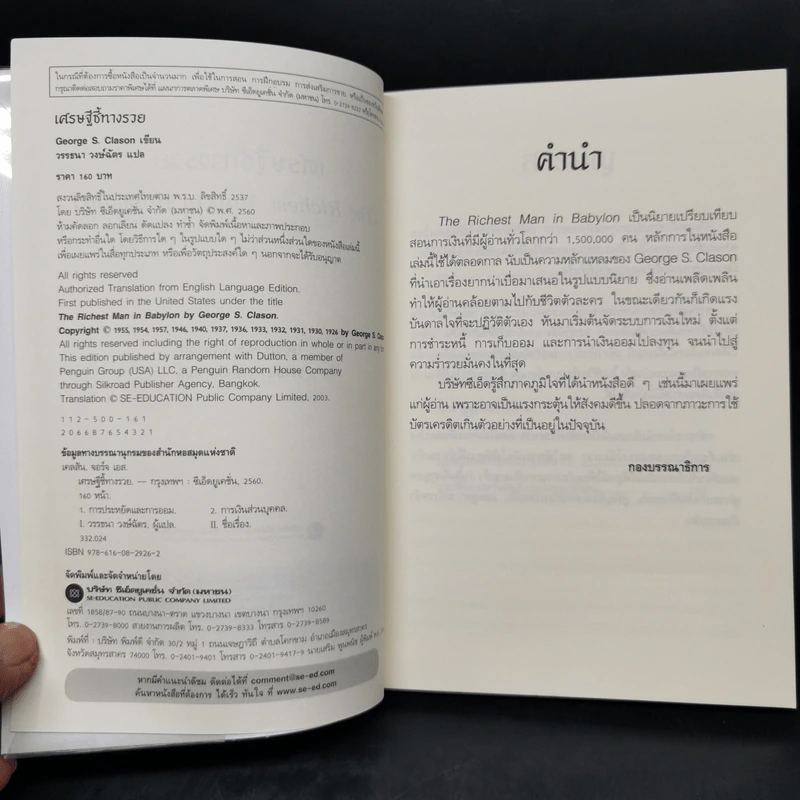 ในกรณีที่ต้องการซื้อหนังสือเป็นจำนวนมาก เพื่อใช้ในการสอน การฝึกอบรม การส่งเสริมการขาย หรือเป็นของขวัญ
กรุณาติดต่อสอบถามราคาพิเศษได้ที่ แผนกการตลาดพิเศษ บริษัท ซีเอ็ดยูเคชั่น จำกัด (มหาชน) โทร. 0-2739-8222
เศรษฐีชี้ทางรวย
George S. Clason เขียน
วรรธนา วงษ์ฉัตร แปล
ราคา 160 บาท
สงวนลิขสิทธิ์ในประเทศไทยตาม พ.ร.บ. ลิขสิทธิ์ 2537
โดย บริษัท ซีเอ็ดยูเคชั่น จำกัด (มหาชน) © พ.ศ. 2560
ห้ามคัดลอก ลอกเลียน ดัดแปลง ทำซ้ำ จัดพิมพ์เนื้อหาและภาพประกอบ
หรือกระทำอื่นใด โดยวิธีการใด ๆ ในรูปแบบใด ๆ ไม่ว่าส่วนหนึ่งส่วนใดของหนังสือเล่มนี้
เพื่อเผยแพร่ในสื่อทุกประเภท หรือเพื่อวัตถุประสงค์ใด ๆ นอกจากจะได้รับอนุญาต
All rights reserved
Authorized Translation from English Language Edition.
First published in the United States under the title
The Richest Man in Babylon by George S. Clason.
Copyright © 1955, 1954, 1957, 1946, 1940, 1937, 1936, 1933, 1932, 1931, 1930, 1926 by George S. Clason
All rights reserved including the right of reproduction in whole or in part in any for
This edition published by arrangement with Dutton, a member of
Penguin Group (USA) LLC, a Penguin Random House Company
through Silkroad Publisher Agency, Bangkok.
Translation © SE-EDUCATION Public Company Limited, 2003.
112-500-161
206687654321
ข้อมูลทางบรรณานุกรมของสำนักหอสมุดแห่งชาติ
เคลสัน, จอร์จ เอส.
เศรษฐีชี้ทางรวย. -- กรุงเทพฯ : ซีเอ็ดยูเคชั่น, 2560.
160 หน้า.
1. การประหยัดและการออม. 2. การเงินส่วนบุคคล.
I. วรรธนา วงษ์ฉัตร, ผู้แปล. II. ชื่อเรื่อง.
332.024
ISBN 978-616-08-2926-2
จัดพิมพ์และจัดจำหน่ายโดย
บริษัท ซีเอ็ดยูเคชั่น จำกัด (มหาชน)
SE-EDUCATION PUBLIC COMPANY LIMITED
เลขที่ 1858/87-90 ถนนบางนา-ตราด แขวงบางนา เขตบางนา กรุงเทพฯ 10260
โทร. 0-2739-8000 สายงานการผลิต โทร. 0-2739-8333 โทรสาร 0-2739-8589
พิมพ์ที่ : บริษัท พิมพ์ดี จำกัด 30/2 หมู่ 1 ถนนเจษฎาวิถี ตำบลโคกขาม อำเภอเมืองสมุทรสาคร
จังหวัดสมุทรสาคร 74000 โทร. 0-2401-9401 โทรสาร 0-2401-9417-9 นายเสริม พูนพนิช ผู้พิมพ์
หากมีคำแนะนำติชม ติดต่อได้ที่ comment@se-ed.com
ค้นหาหนังสือที่ต้องการ ได้เร็ว ทันใจ ที่ www.se-ed.com
คำนำ
The Richest Man in Babylon เป็นนิยายเปรียบเทียบ
สอนการเงินที่มีผู้อ่านทั่วโลกกว่า 1,500,000 คน หลักการในหนังสือ
เล่มนี้ใช้ได้ตลอดกาล นับเป็นความหลักแหลมของ George S. Clason
ที่นำเอาเรื่องยากน่าเบื่อมาเสนอในรูปแบบนิยาย ซึ่งอ่านเพลิดเพลิน
ทำให้ผู้อ่านคล้อยตามไปกับชีวิตตัวละคร ในขณะเดียวกันก็เกิดแรง
บันดาลใจที่จะปฏิวัติตัวเอง หันมาเริ่มต้นจัดระบบการเงินใหม่ ตั้งแต่
การชำระหนี้ การเก็บออม และการนำเงินออมไปลงทุน จนนำไปสู่
ความร่ำรวยมั่นคงในที่สุด
บริษัทซีเอ็ดรู้สึกภาคภูมิใจที่ได้นำหนังสือดี ๆ เช่นนี้มาเผยแพร่
แก่ผู้อ่าน เพราะอาจเป็นแรงกระตุ้นให้สังคมดีขึ้น ปลอดจากภาวะการใช้
บัตรเครดิตเกินตัวอย่างที่เป็นอยู่ในปัจจุบัน
กองบรรณาธิการ